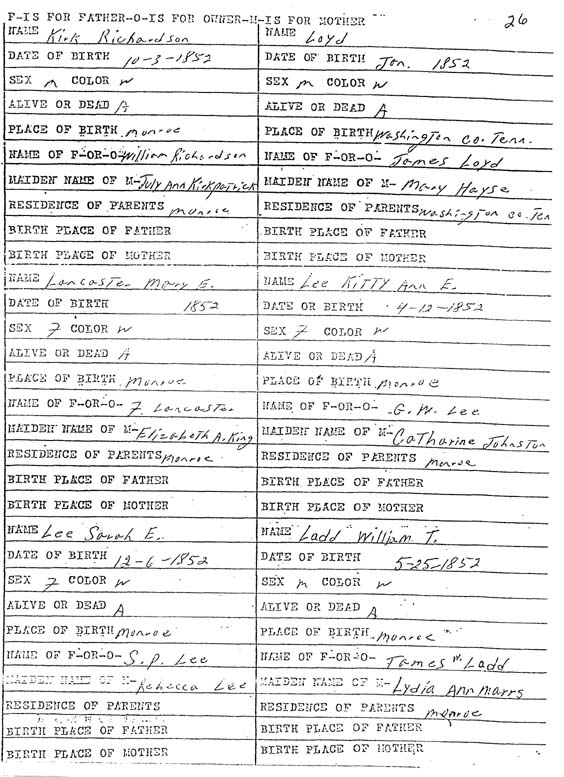 F-IS FOR FATHER-O-IS FOR OWNER-M-IS FOR MOTHER 26
NAME Kirk Richardson
DATE OF BIRTH 10-3-1852
SEX m COLOR W
ALIVE OR DEAD A
PLACE OF BIRTH monroe
NAME OF F-OR-O- William Richardson
MAIDEN NAME OF M- July Ann Kirkpatrick
RESIDENCE OF PARENTS monroe
BIRTH PLACE OF FATHER
BIRTH PLACE OF MOTHER
NAME Lancaster Mary E.
DATE OF BIRTH 1852
SEX F COLOR W
ALIVE OR DEAD A
PLACE OF BIRTH monroe
NAME OF F-OR-O- F. Lancaster
MAIDEN NAME OF M- Elizabeth A. King
RESIDENCE OF PARENTS monroe
BIRTH PLACE OF FATHER
BIRTH PLACE OF MOTHER
NAME Lee Sarah E.
DATE OF BIRTH 12-6-1852
SEX F COLOR W
ALIVE OR DEAD A
PLACE OF BIRTH monroe
NAME OF F-OR-O- S.P. Lee
MAIDEN NAME OF M- Rebecca Lee
RESIDENCE OF PARENTS
BIRTH PLACE OF FATHER
BIRTH PLACE OF MOTHER
NAME Loyd
DATE OF BIRTH Jan. 1852
SEX m COLOR W
ALIVE OR DEAD A
PLACE OF BIRTH Washington co. Tenn.
NAME OF F-OR-O- James Loyd
MAIDEN NAME OF M- Mary Hayse
RESIDENCE OF PARENTS Washington co. Ten
BIRTH PLACE OF FATHER
BIRTH PLACE OF MOTHER
NAME Lee KITTY Ann E.
DATE OR BIRTH 4-12-1852
SEX F COLOR W
ALIVE OR DEAD A
PLACE OF BIRTH monroe
NAME OF F-OR-O- G.W. Lee
MAIDEN NAME OF M- Catharine Johnston
RESIDENCE OF PARENTS monroe
BIRTH PLACE OF FATHER
BIRTH PLACE OF MOTHER
NAME Ladd William T.
DATE OF BIRTH 5-25-1852
SEX m COLOR W
ALIVE OR DEAD A
PLACE OF BIRTH monroe
NAME OF F-OR-O- James W. Ladd
MAIDEN NAME OF M- Lydia Ann Marrs
RESIDENCE OF PARENTS monroe
BIRTH PLACE OF FATHER
BIRTH PLACE OF MOTHER